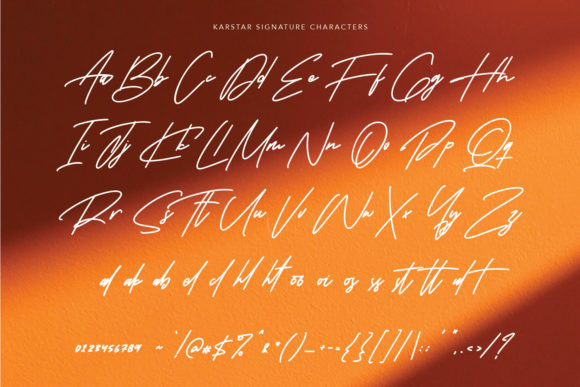 KARSTAR SIGNATURE CHARACTERS
Aa Bb Cc Dd Ee Ff Gg Hh
Ii Jj Kk Ll Mm Nn Oo Pp Qq
Rr Ss Tt Uu Vv Ww Xx Yy Zz
0123456789 ~ `!@#$% ^ & *()_ +-= {}[]/|\ : ; ' " , . < > / ?